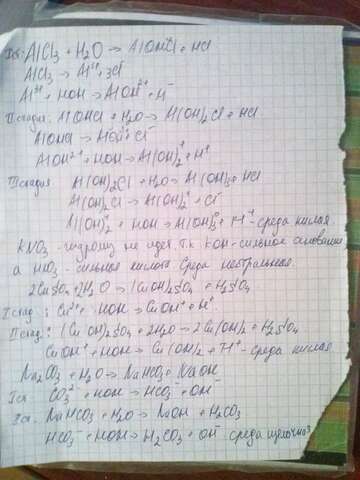 I ст: AlCl3 + H2O → AlOHCl + HCl
AlCl3 → Al3+ + 3Cl-
Al3+ + HOH → AlOH2+ + H-
II стадия: AlOHCl + H2O → Al(OH)2Cl + HCl
AlOH2+ + HOH → Al(OH)2+ + H+
III стадия Al(OH)2Cl + H2O → Al(OH)3 + HCl
Al(OH)2Cl → Al(OH)2+ + Cl-
Al(OH)2+ + HOH → Al(OH)3 + H+ - среда кислая
KNO3 - гидролиз не идет, т.к KOH - сильное основание
а HNO3 - сильная кислота. Среда нейтральная.
2CuSO4 + 2H2O → (CuOH)2SO4 + H2SO4
I стад: Cu2+ + HOH → CuOH+ + H+
II стад: (CuOH)2SO4 + 2H2O → 2Cu(OH)2 + H2SO4
CuOH+ + HOH → Cu(OH)2 + H+ - среда кислая
Na2CO3 + H2O → NaHCO3 + NaOH
I ст: CO3 2- + HOH → HCO3- + OH-
II ст. NaHCO3 + H2O → NaOH + H2CO3
HCO3- + HOH → H2CO3 + OH- среда щелочная